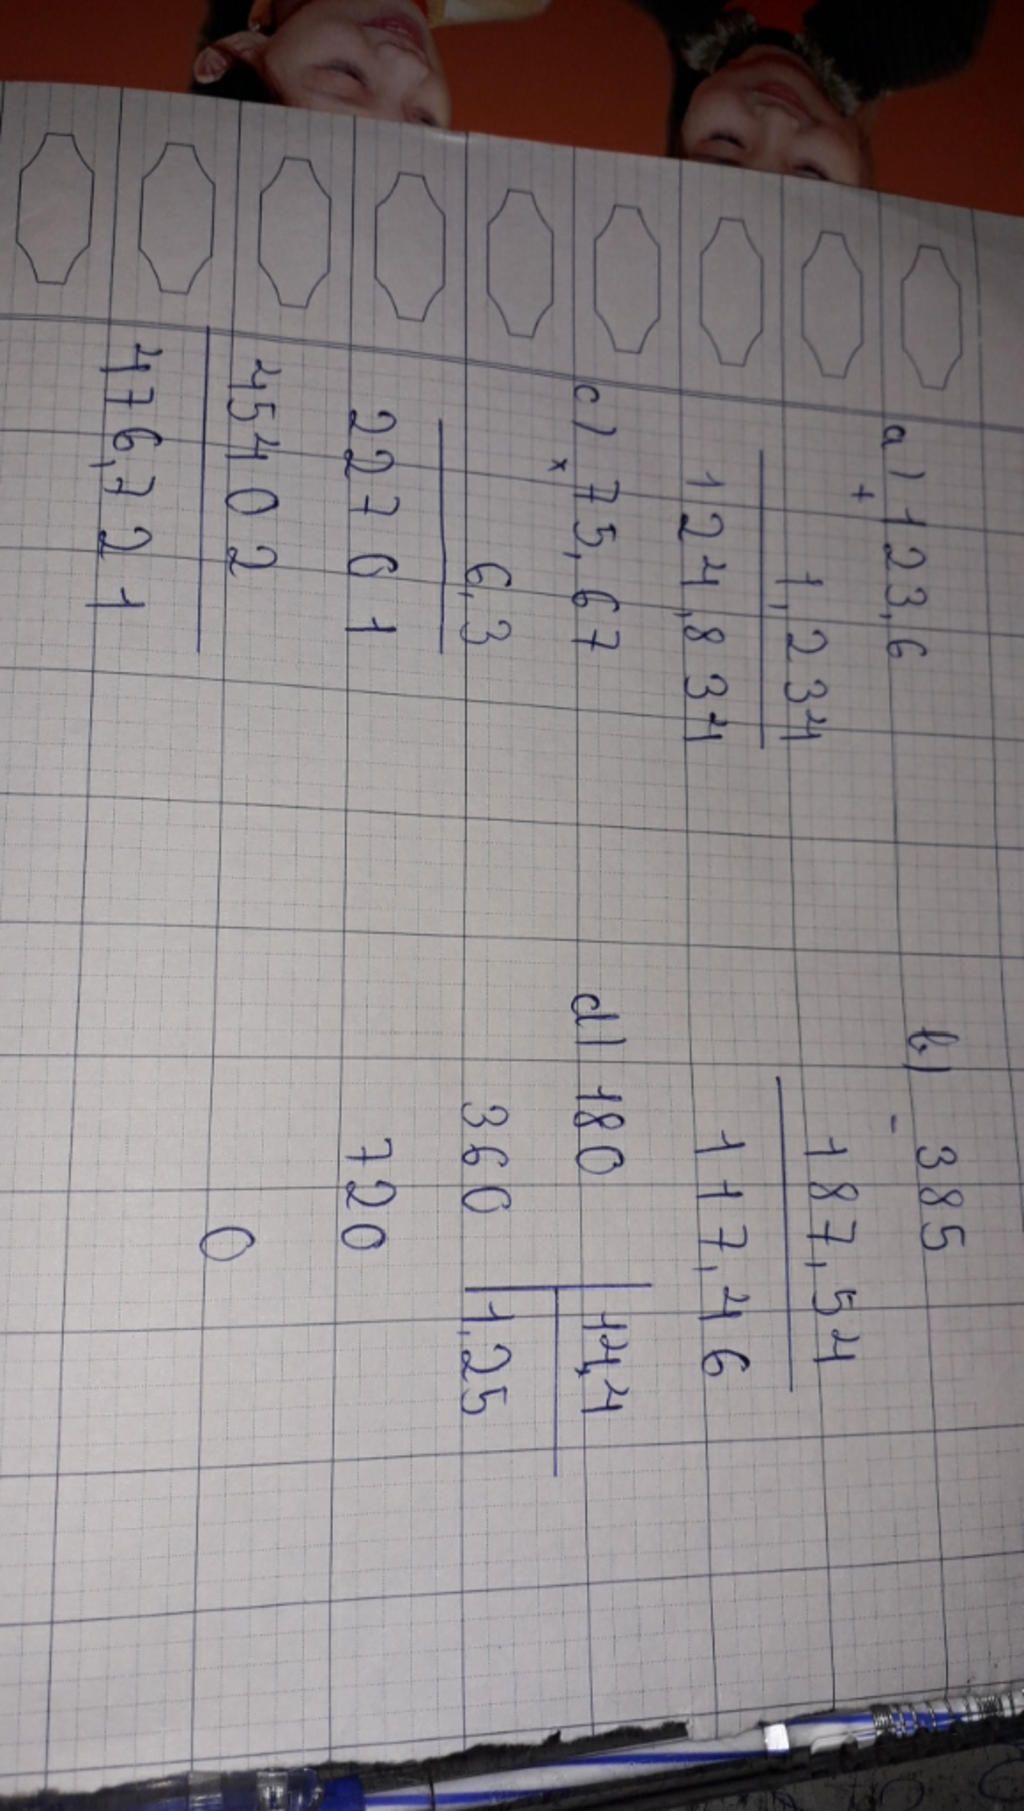 a) 123,6
+
1,234
124,834
b) 385
-
187,54
117,46
c) 75,67
x
6,3
22761
45402
476,721
d) 180 14,4
360 1,25
720
0